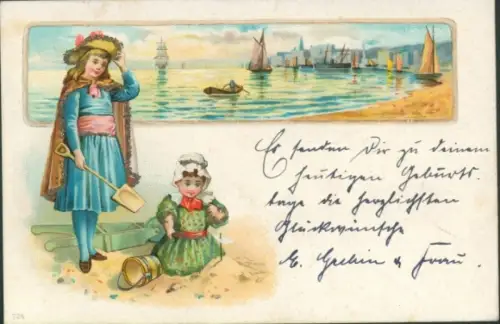 Es senden Dir zu deinem
heutigen Geburts-
tage die herzlichsten
Glückwünsche
& Frau.